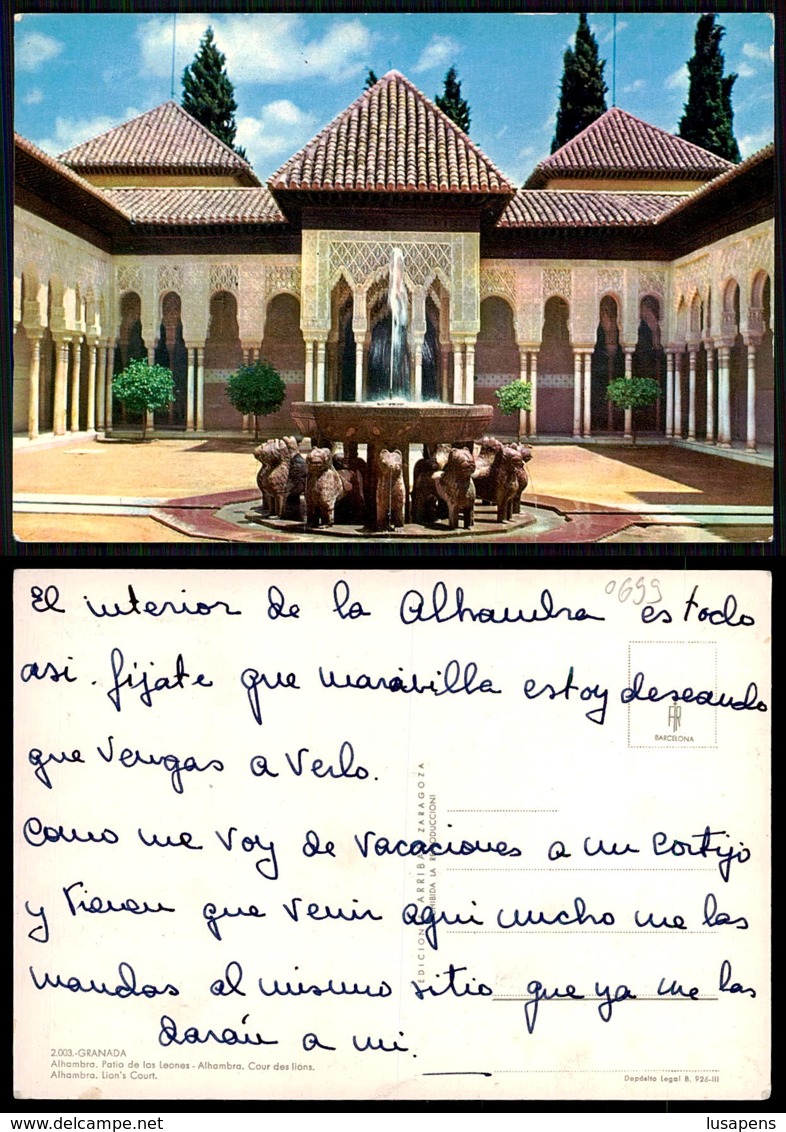 0699
El interior de la Alhambra es todo
asi. fíjate que maravilla estoy deseando
que vengas a verlo.
Como me voy de vacaciones a un Cortijo
y tienen que venir aqui mucho me las
mandas al mismo sitio que ya me las
darán a mi.
BARCELONA
EDICIONES ARRIBAS ZARAGOZA
PROHIBIDA LA REPRODUCCION
2.003.-GRANADA
Alhambra. Patio de los Leones - Alhambra. Cour des lions.
Alhambra. Lian's Court.
Depósito Legal B. 926-III
lusapens